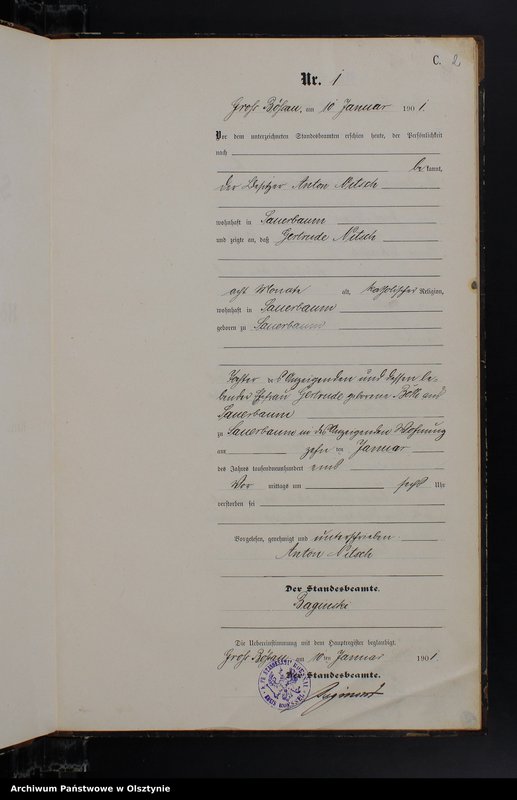 C. 2
Nr. 1
Groß Bößau, am 10 Januar 1901.
Vor dem unterzeichneten Standesbeamten erschien heute, der Persönlichkeit
nach
be kannt,
der Besitzer Anton Nitsch
wohnhaft in Sauerbaum
und zeigte an, daß Gertrude Nitsch
acht Monate alt, katholischer Religion,
wohnhaft in Sauerbaum
geboren zu Sauerbaum
Tochter des Anzeigenden und dessen le-
benden Ehefrau Gertrude geborene aus
Sauerbaum
zu Sauerbaum in des Anzeigenden Wohnung
am zehnten Januar
des Jahres tausendneunhundert eins
Vor mittags um sechs Uhr
verstorben sei
Vorgelesen, genehmigt und unterschrieben
Anton Nitsch
Der Standesbeamte.
Baginski
Die Uebereinstimmung mit dem Hauptregister beglaubigt.
Groß Bößau, am 10ten Januar 1901.
Der Standesbeamte.
Archiwum Państwowe w Olsztynie